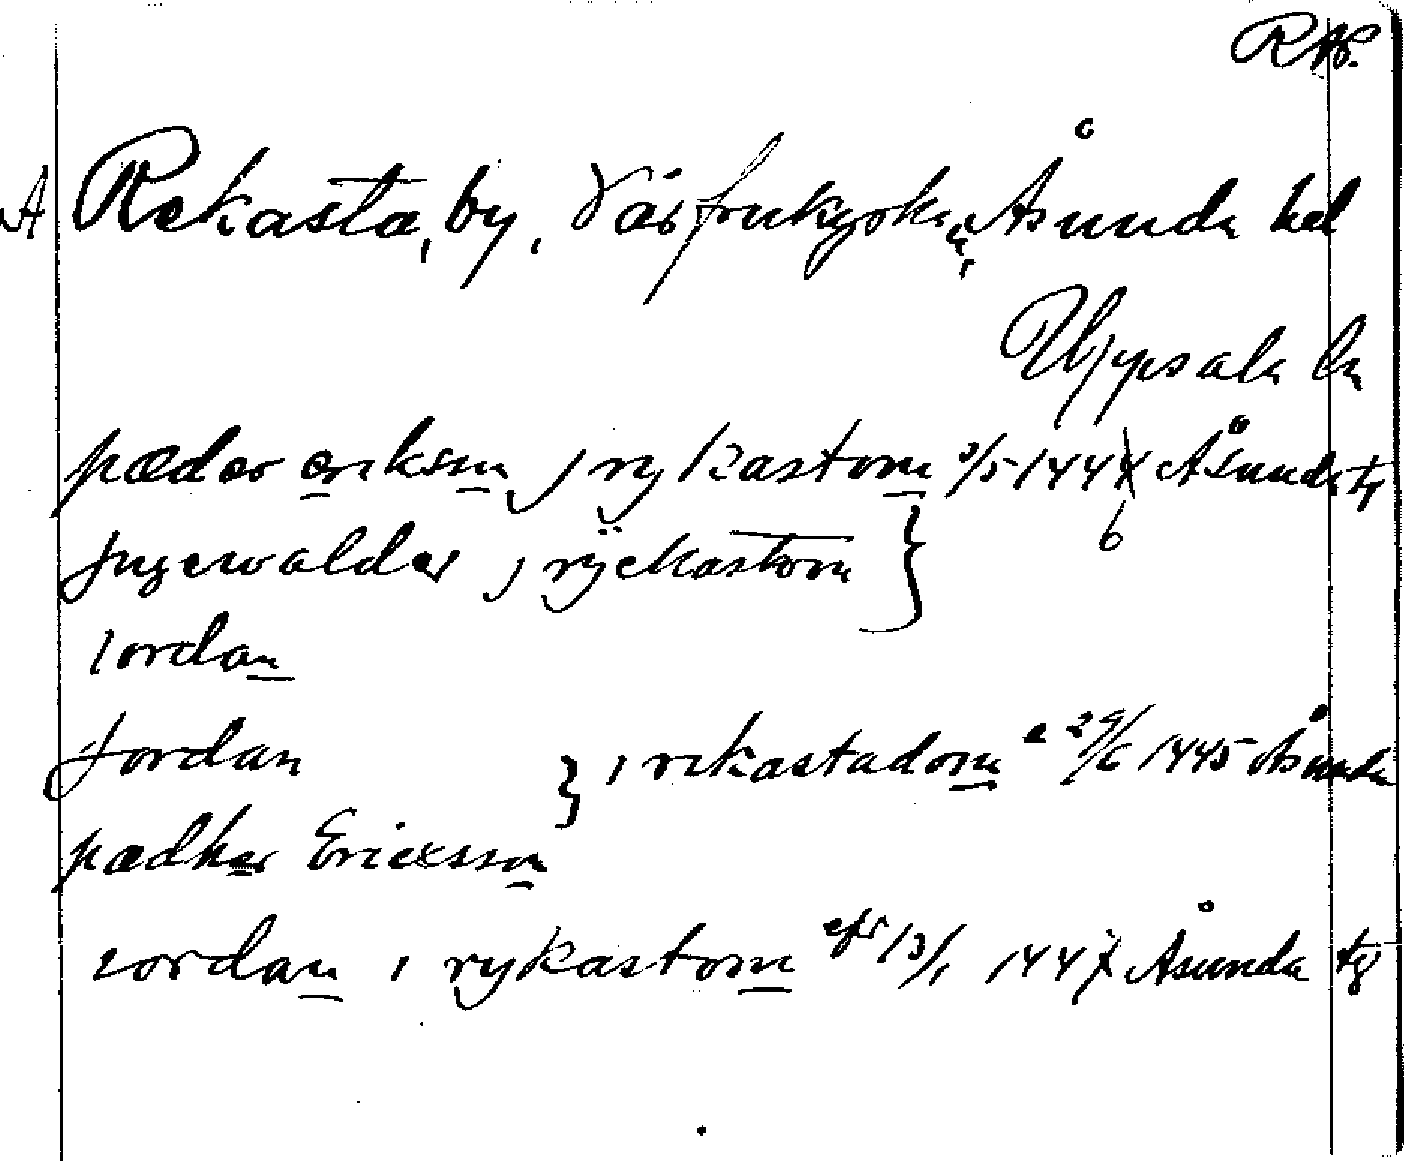 RA.
A Rekasta, by, Vårfrukyrka, Åsunda hd
Uppsala ln
pæder erikson j rykastom 3/5 1444 Åsunda tg
6
Jngewalder j rÿekastom }
Iordan
Jordan } i rekastadom e 29/6 1445 Åsunda
pædher Ericxsson
iordan i rykastom eftr 13/1 1447 Åsunda tg